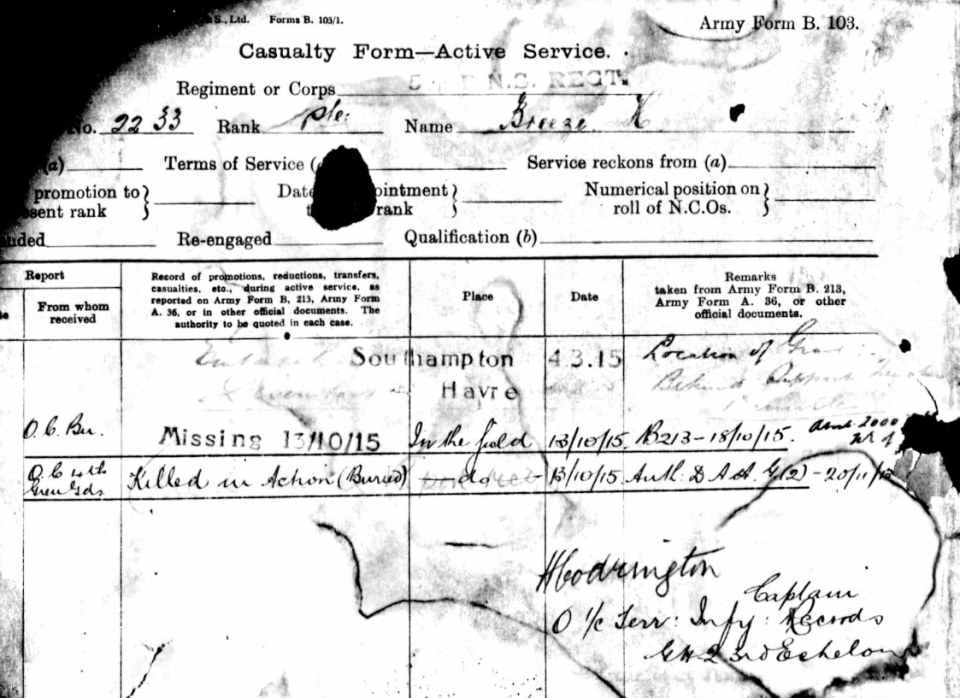 S., Ltd. Forms B. 103/1.
Army Form B. 103.
Casualty Form—Active Service.
Regiment or Corps 5 N.S. REGT.
No. 2233 Rank Pte. Name Breeze H
(a) Terms of Service ( Service reckons from (a)
promotion to sent rank } Date ointment rank } Numerical position on roll of N.C.Os. }
nded Re-engaged Qualification (b)
Report
From whom received
Record of promotions, reductions, transfers, casualties, etc., during active service, as reported on Army Form B. 213, Army Form A. 36, or in other official documents. The authority to be quoted in each case.
Place
Date
Remarks taken from Army Form B. 213, Army Form A. 36, or other official documents.
Southampton 4.3.15 Location of Grave
Havre Behind Support
O.C. Bn. Missing 13/10/15 In the field 13/10/15. B213-18/10/15. About 2000
O.C 4th Gren Gds Killed in Action (Buried) do 13/10/15 Auth: D A G. G(2) - 20/11/15
H Codrington
Captain
O i/c Terr: Infy: Records
GHQ 3rd Echelon